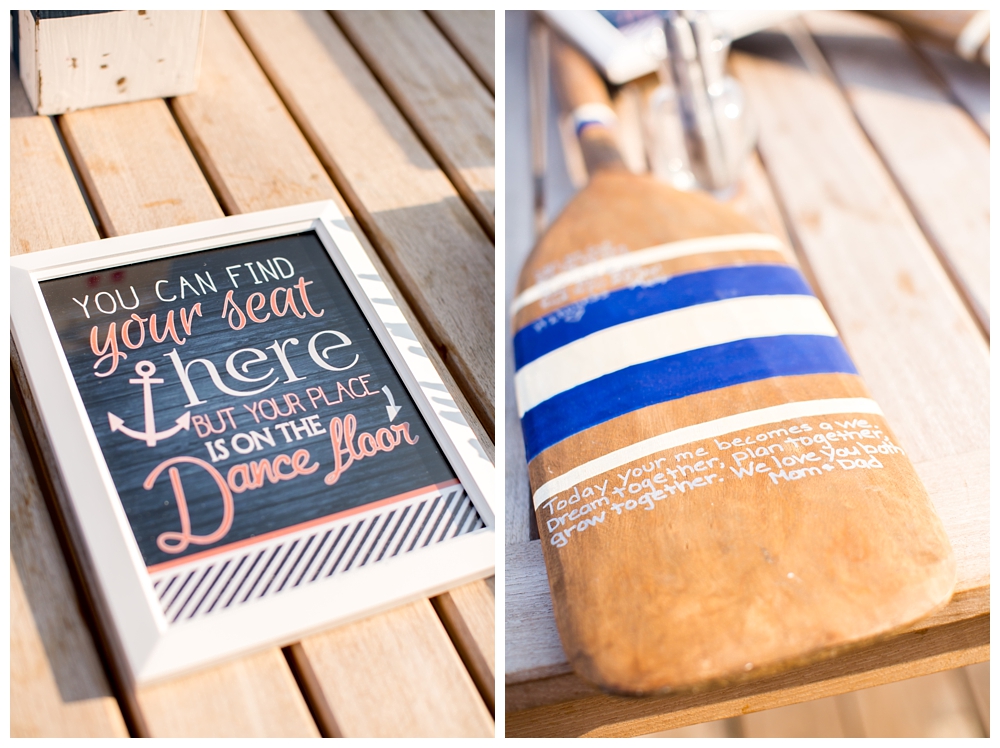 YOU CAN FIND
your seat
here
BUT YOUR PLACE
IS ON THE
Dance floor
Today your me becomes a we.
Dream together, plan together,
grow together. We love you both
Mom & Dad